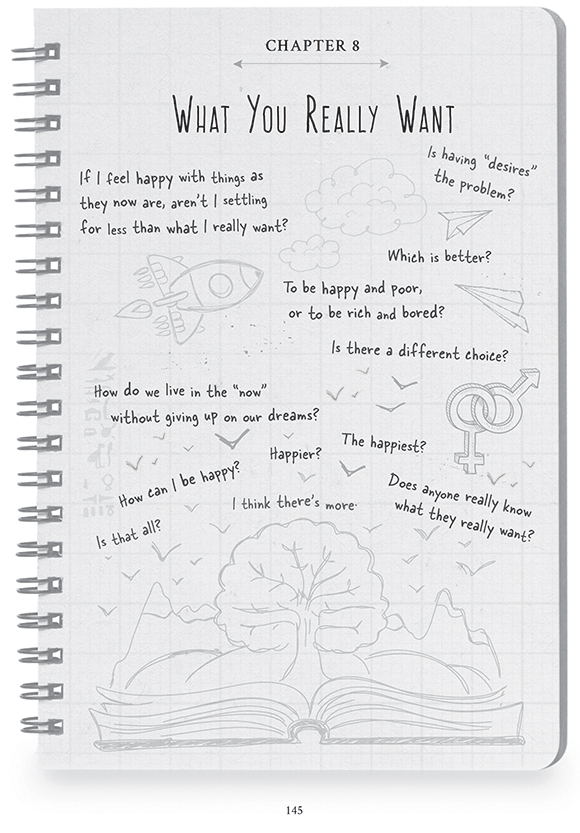 CHAPTER 8
What You Really Want
Is having "desires"
the problem?
If I feel happy with things as
they now are, aren't I settling
for less than what I really want?
Which is better?
To be happy and poor,
or to be rich and bored?
Is there a different choice?
How do we live in the "now"
without giving up on our dreams?
The happiest?
Happier?
How can I be happy?
Does anyone really know
what they really want?
I think there's more.
Is that all?
145